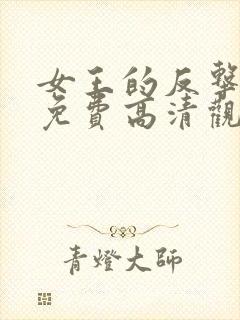 女王的反擊
免費高清觀
青燈大師